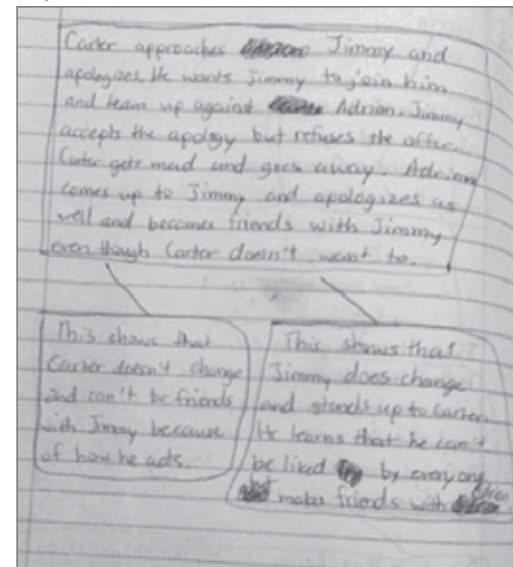 Carter approaches Jimmy and
apologizes. He wants Jimmy to join him
and team up against Adrian. Jimmy
accepts the apology but refuses the offer.
Carter gets mad and goes away. Adrian
comes up to Jimmy and apologizes as
well and becomes friends with Jimmy
even though Carter doesn't want to.
This shows that
Carter doesn't change
and can't be friends
with Jimmy because
of how he acts.
This shows that
Jimmy does change
and stands up to Carter.
He learns that he can't
be liked by everyone
makes friends with Adrian